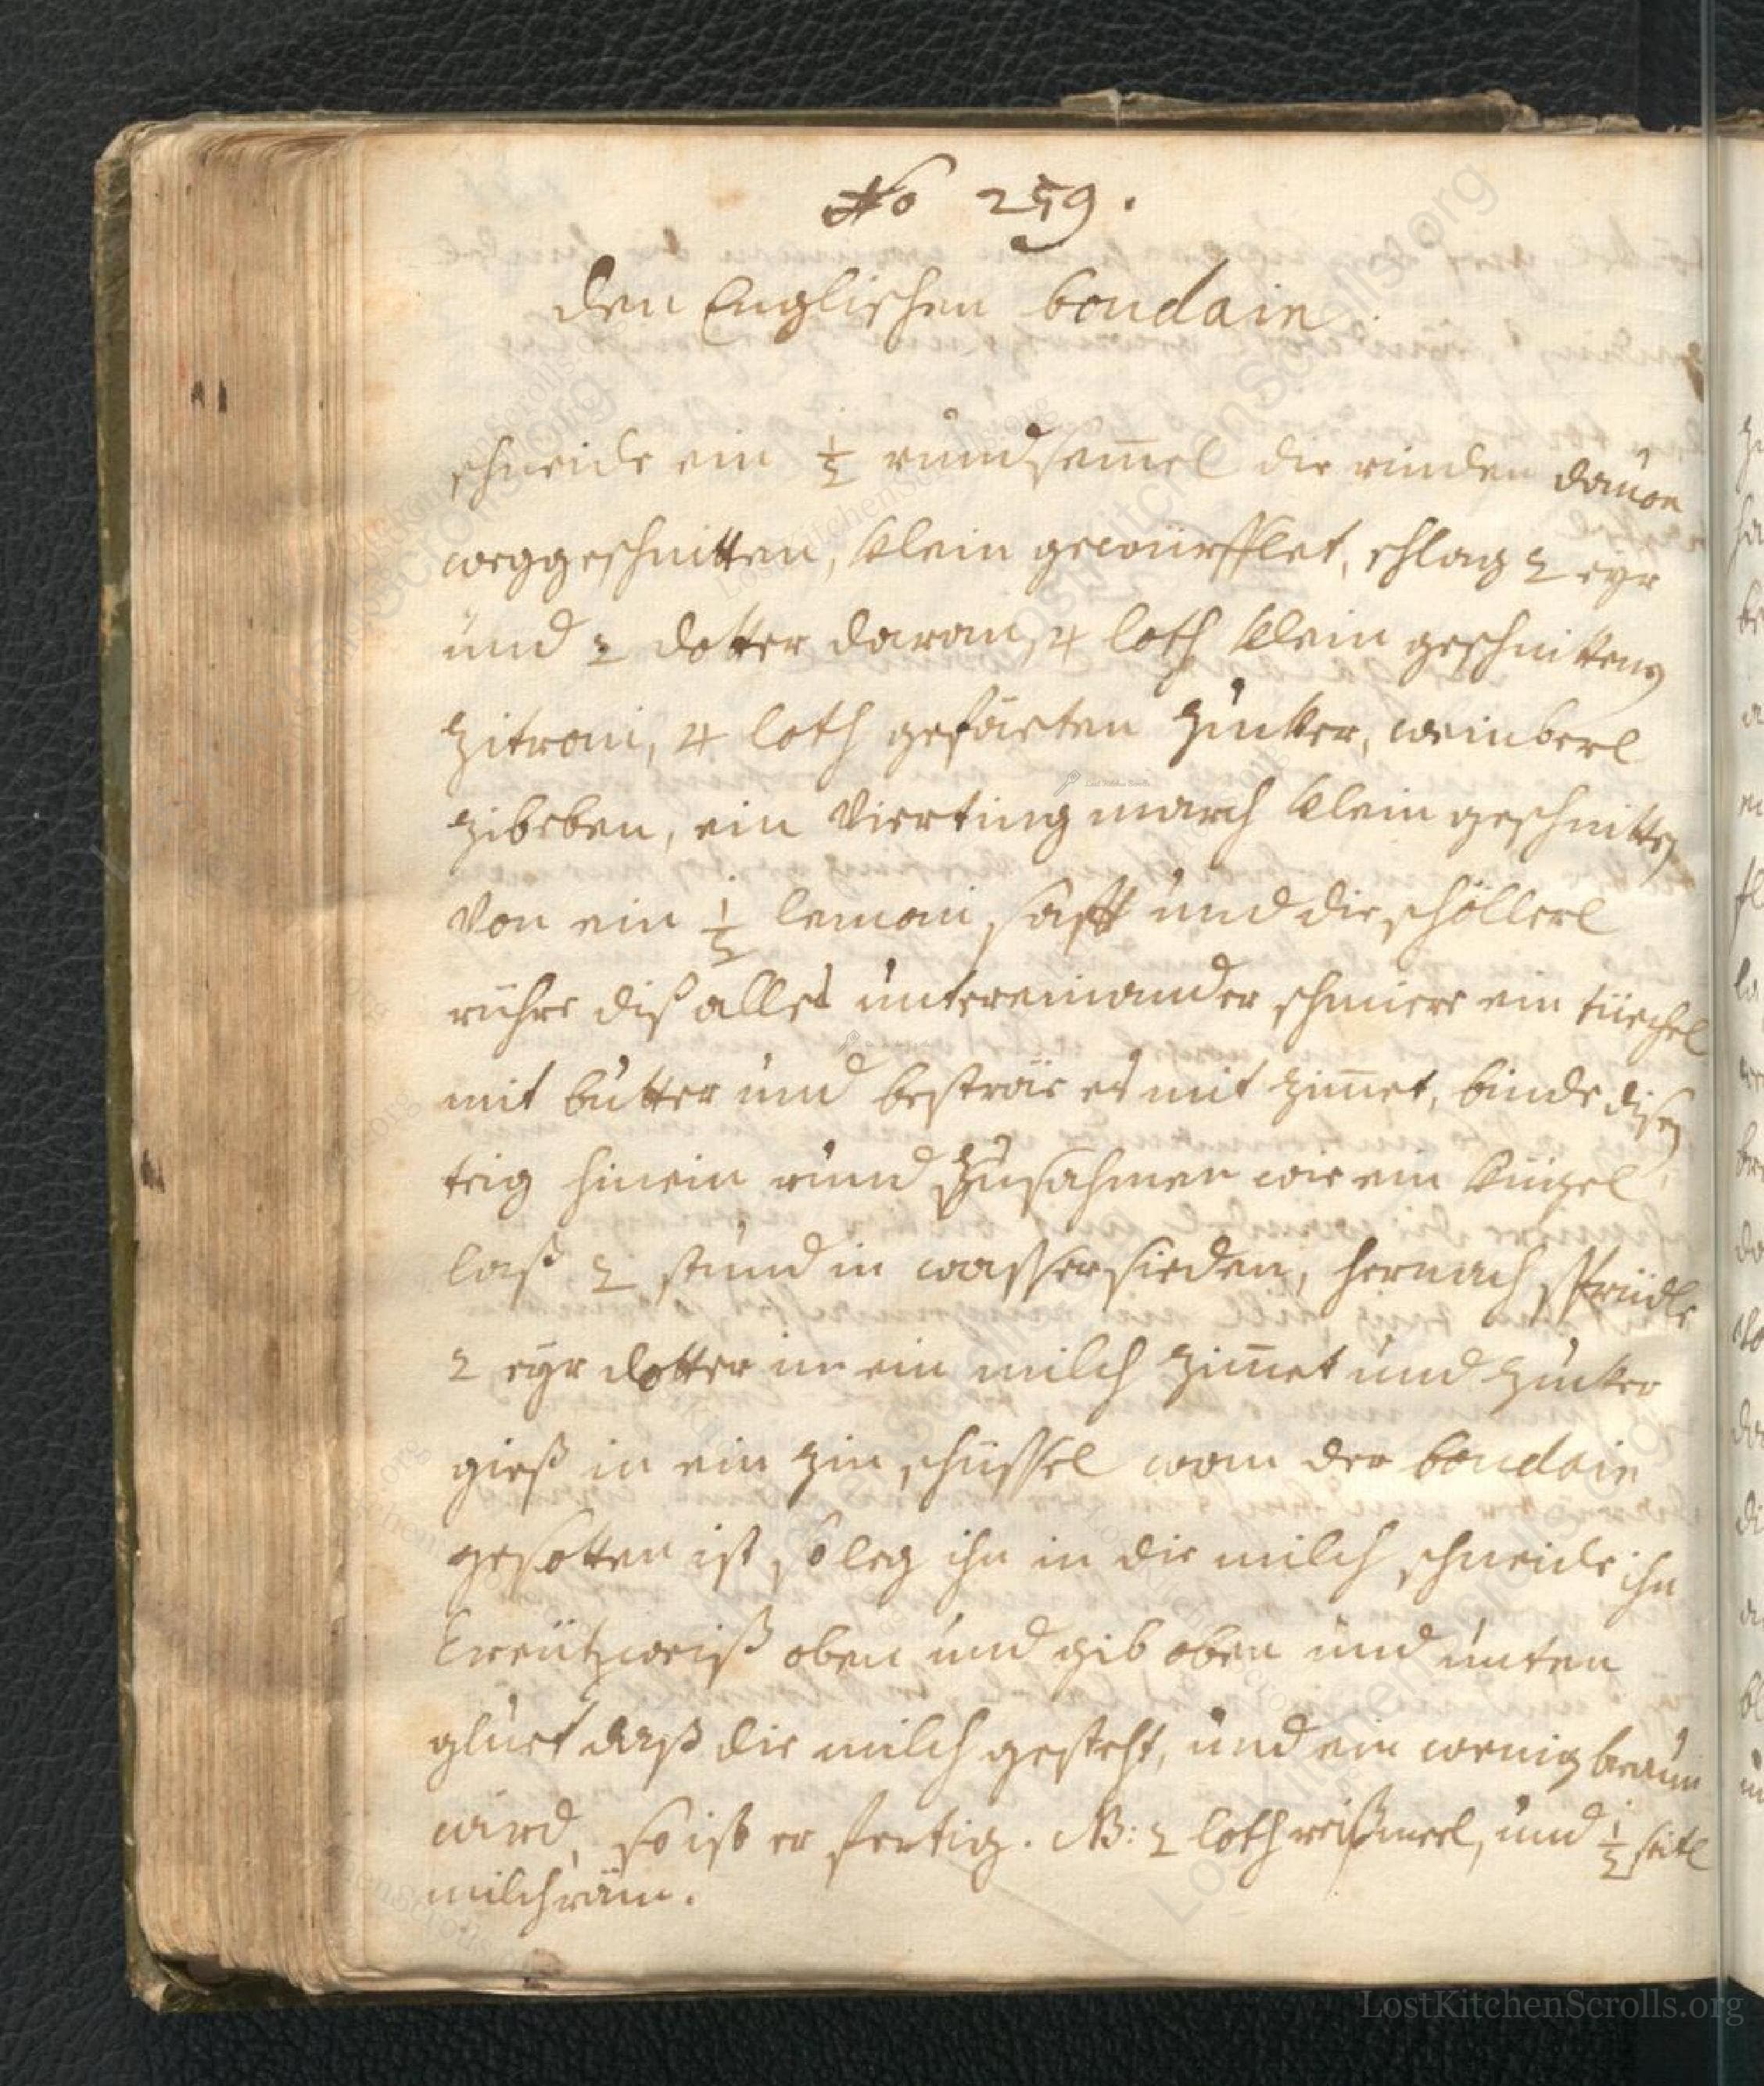 No 259.
den Englischen boudain.
schneide ein ½ rundsem̄el die rinden dauon
weggeschnitten, klein gewürfflet, schlag 2 eyr
und 2 dotter daran, 4 loth klein geschnitteng
zitroni, 4 loth gefäeten zucker, weinberl
zibeben, ein Vierting march klein geschnitten
Von ein ½ lemoni saft und die schöllerl
rühre diß alles untereinander schmiere ein tüechel
mit butter und besträe es mit zim̄et, binde disen
teig hinein rund zusahmen wie ein kugel
laß 2 stund in wasser sieden, hernach sprüdle
2 eyr dotter in ein milch zim̄et und zucker
gieß in ein zin schüssel wan der boudain
gesotten ist, so leg ihn in die milch schneide ihn
Creützweiß oben und gib oben und unten
gluet daß die milch gesteht, und ein wenig braun
wird, so ist er fertig. NB: 2 loth reißmeel, und ½ seitl
milchräm.
LostKitchenScrolls.org